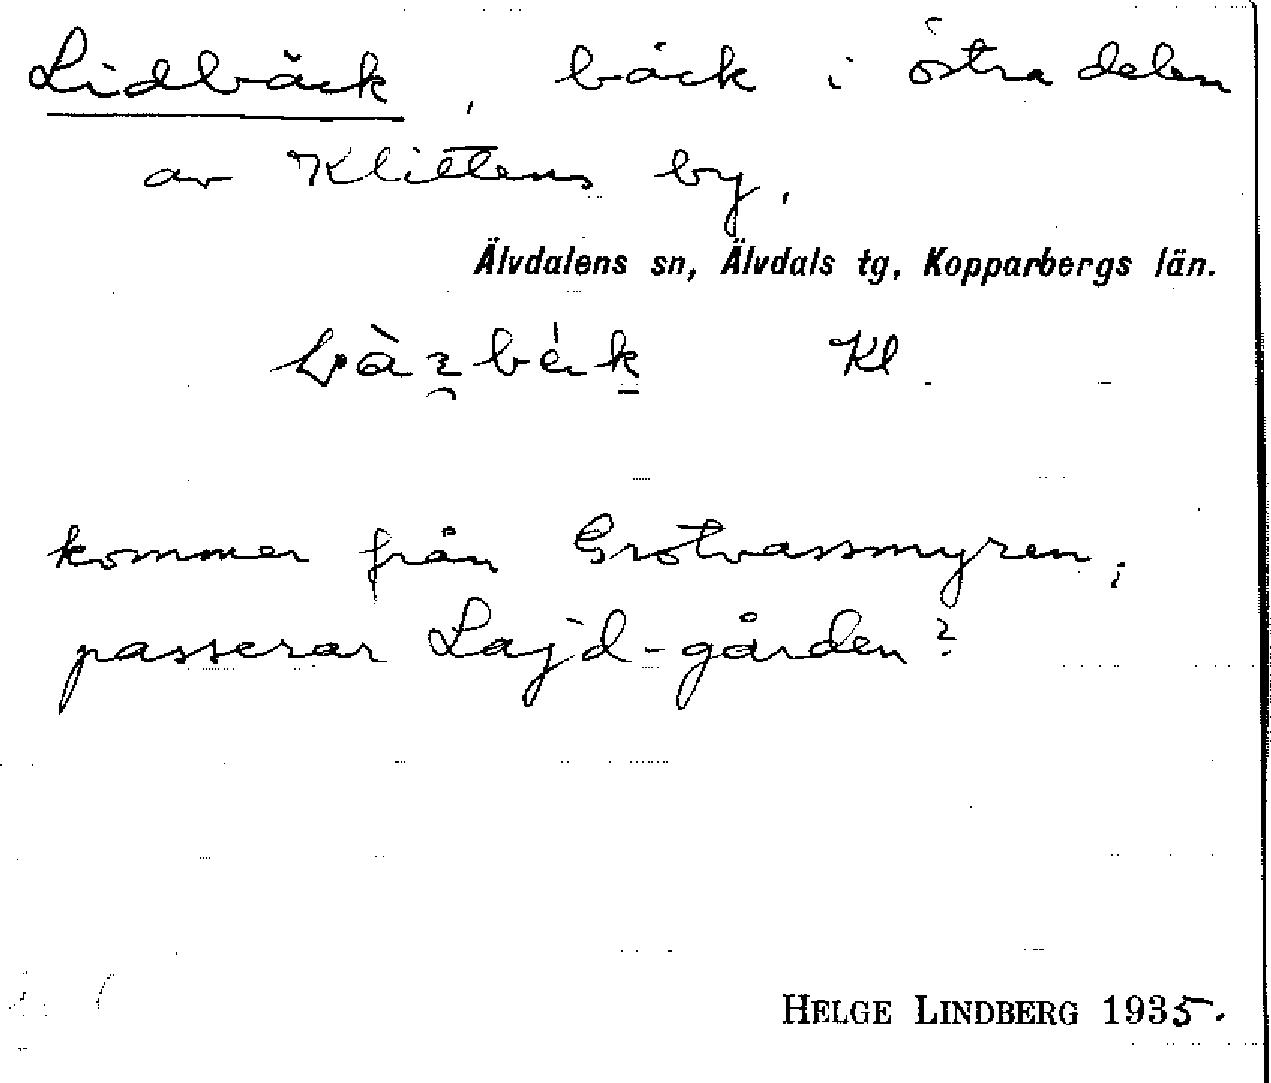 Lidbäck, bäck i östra delen
av Klittens by.
Älvdalens sn, Älvdals tg, Kopparbergs län.
Kl.
kommer från Grotvassmyren,
passerar Lajd-gården?
HELGE LINDBERG 1935.